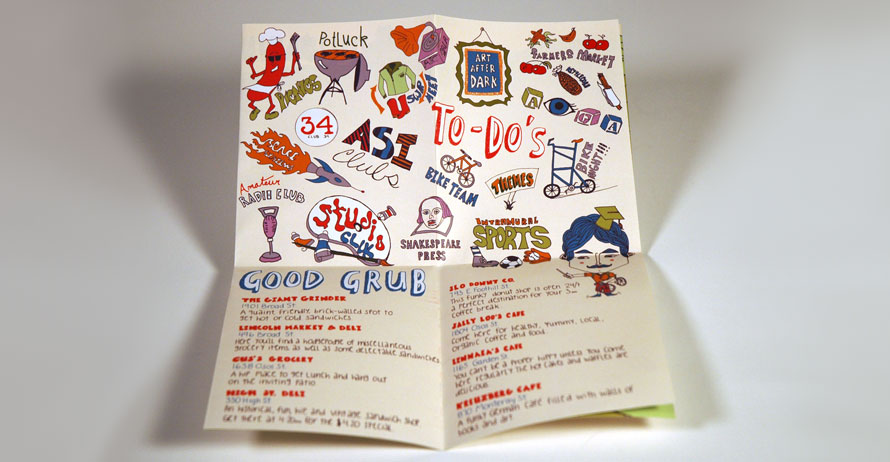 POTLUCK
PICNICS
SWAP
MEET
ART
AFTER
DARK
FARMERS MARKET
34
CLUB 34
ASI
Clubs
TO-DO'S
BIKE
NIGHT!!!
BIKE TEAM
THEMES
Amateur
RADIO CLUB
Studio
CLUB
SHAKESPEARE
PRESS
INTRAMURAL
SPORTS
GOOD GRUB
THE GIANT GRINDER
1901 Broad St.
A quaint friendly brick-walled spot to
get hot or cold sandwiches.
LINCOLN MARKET & DELI
496 Broad St.
Here you'll find a hodgepodge of miscellaneous
grocery items as well as some delectable sandwiches.
GUS'S GROCERY
1638 Osos St.
A hip place to get lunch and hang out
on the inviting patio.
HIGH ST. DELI
350 High St.
An historical, fun, hip and vintage sandwich shop.
Get there at 4:20pm for the $4.20 special.
SLO DONUT CO.
793 E Foothill St.
This funky donut shop is open 24/7
a perfect destination for your 3am
coffee break.
SALLY LOO'S CAFE
1804 Osos St.
Come here for healthy, yummy, local,
organic coffee and food.
LINNAEA'S CAFE
1163 Garden St.
You can't be a proper hippy unless you come
here regularly. The hot cakes and waffles are
delicious.
KREUZBERG CAFE
810 Monterey St.
A funky German cafe filled with walls of
books and art.